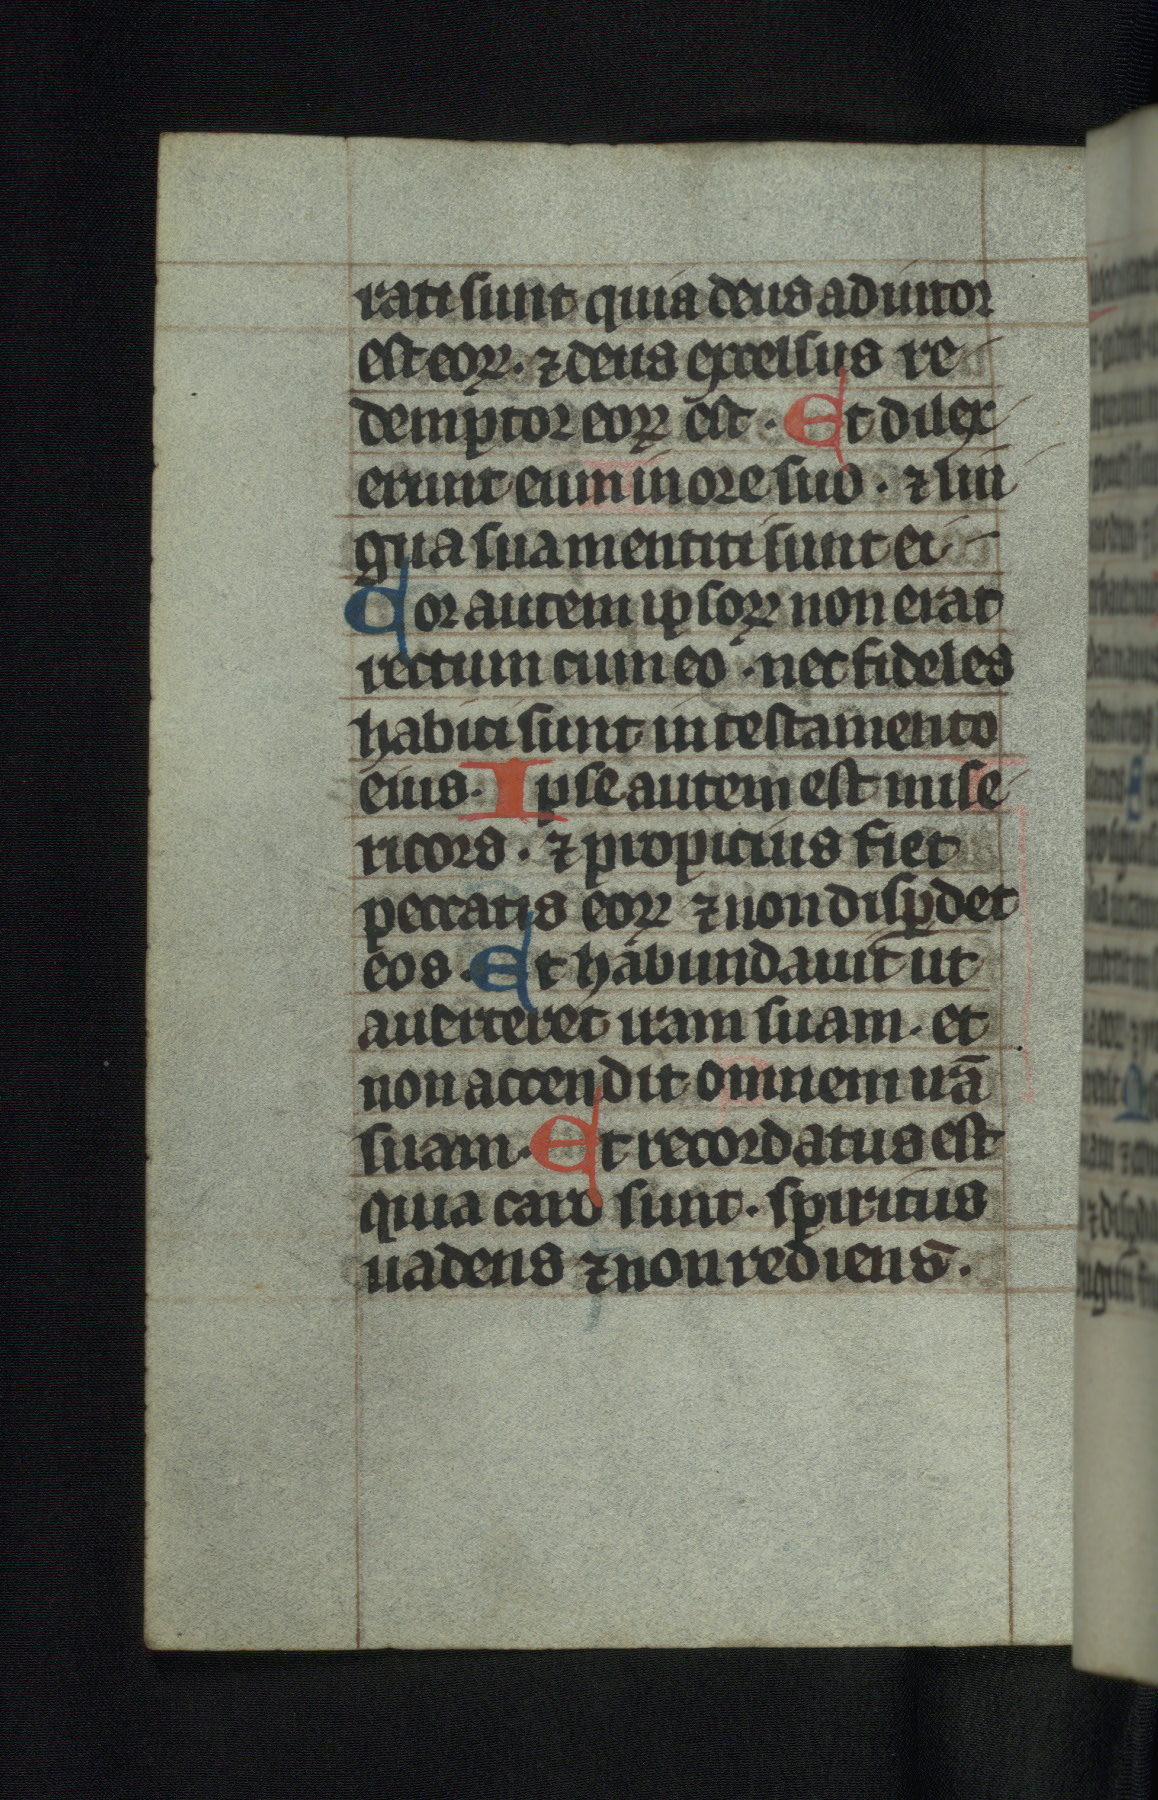 rati sunt quia deus adiutor
est eoꝝ. ⁊ deus excelsus re
demptor eoꝝ est. Et dilex
erunt eum in ore suo. ⁊ lin
gua sua mentiti sunt ei
Cor autem ipsoꝝ non erat
rectum cum eo. nec fideles
habiti sunt in testamento
eius. Ipse autem est mise
ricors. ⁊ propicius fiet
peccatis eoꝝ ⁊ non disꝑdet
eos. Et habundauit ut
auerteret iram suam. et
non accendit omnem irā
suam. Et recordatus est
quia caro sunt. spiritus
uadens ⁊ non rediens.